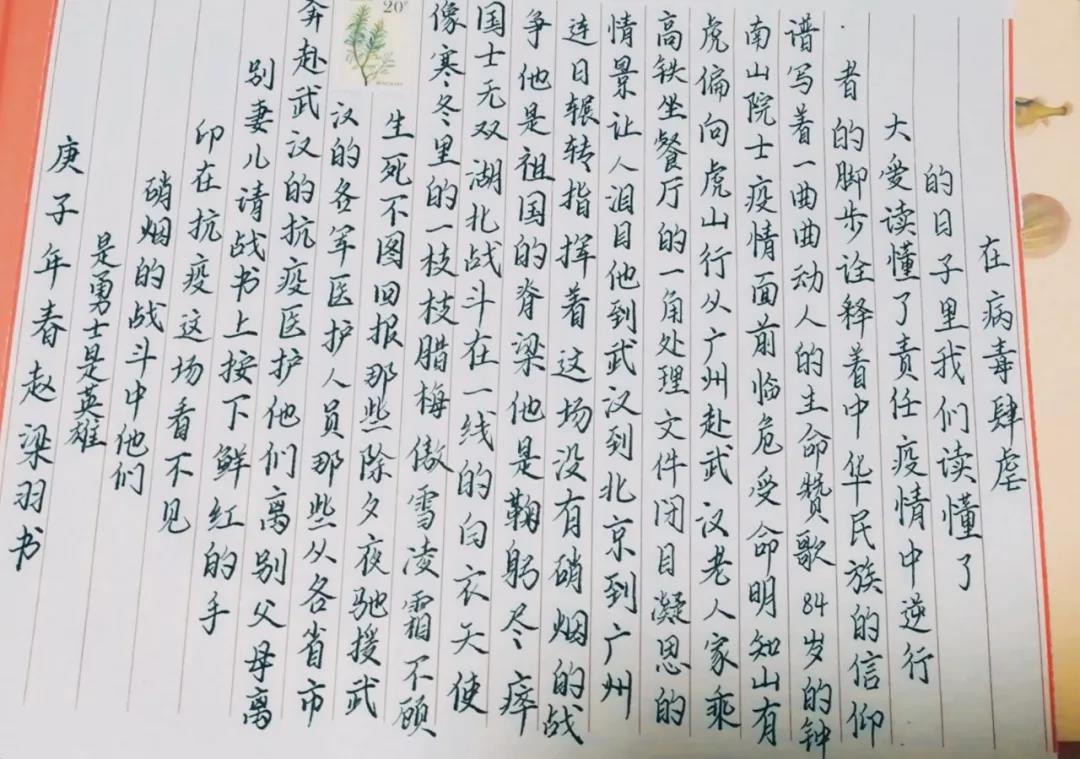 在病毒肆虐
的日子里我们读懂了
大爱读懂了责任疫情中逆行
者的脚步诠释着中华民族的信仰
谱写着一曲曲动人的生命赞歌84岁的钟
南山院士疫情面前临危受命明知山有
虎偏向虎山行从广州赴武汉老人家乘
高铁坐餐厅的一角处理文件闭目凝思的
情景让人泪目他到武汉到北京到广州
连日辗转指挥着这场没有硝烟的战
争他是祖国的脊梁他是鞠躬尽瘁
国士无双湖北战斗在一线的白衣天使
像寒冬里的一枝枝腊梅傲雪凌霜不顾
生死不图回报那些除夕夜驰援武
汉的各军医护人员那些从各省市
奔赴武汉的抗疫医护他们离别父母离
别妻儿请战书上按下鲜红的手
印在抗疫这场看不见
硝烟的战斗中他们
是勇士是英雄
庚子年春赵梁羽书
20分